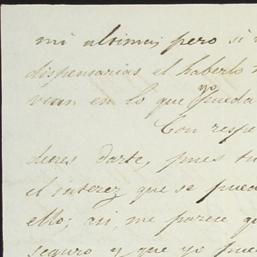 mi ultima; pero si
dispensarias el haberlo
vean en lo que yo pueda
Con respe
deres darte, pues tu
el interez que se pued
ello; asi, me parece q
seguro y que yo pue